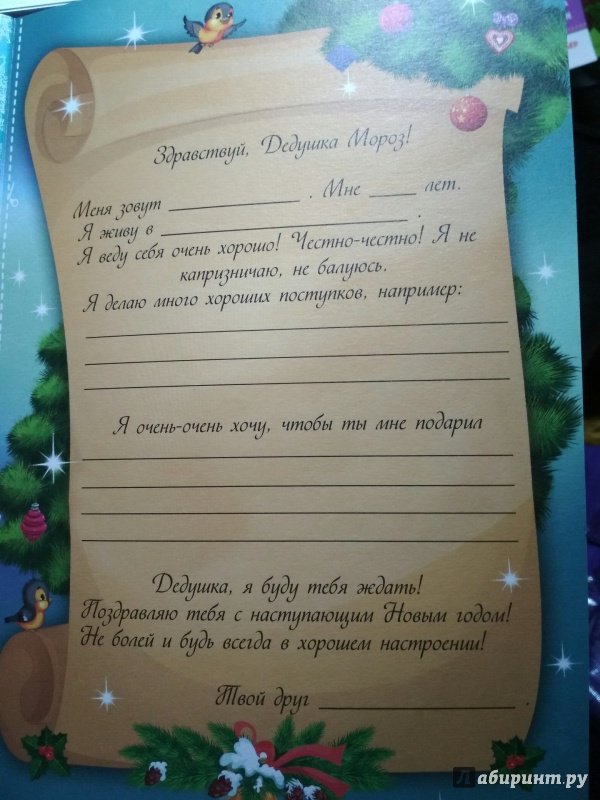 Здравствуй, Дедушка Мороз!
Меня зовут ____________ . Мне ____ лет.
Я живу в ______________________ .
Я веду себя очень хорошо! Честно-честно! Я не
капризничаю, не балуюсь.
Я делаю много хороших поступков, например:
Я очень-очень хочу, чтобы ты мне подарил
Дедушка, я буду тебя ждать!
Поздравляю тебя с наступающим Новым годом!
Не болей и будь всегда в хорошем настроении!
Твой друг __________________ .
Лабиринт.ру